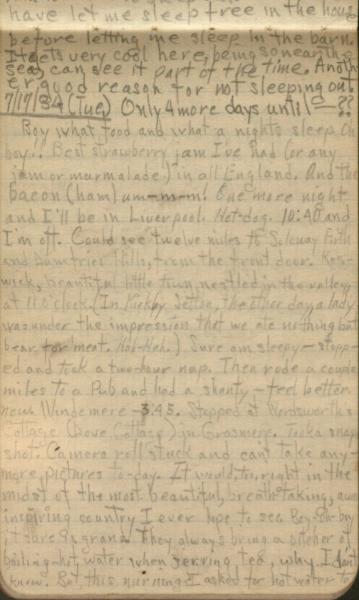 have let me sleep free in the house
before letting me sleep in the barn.
It gets very cool here, being so near the
sea, can see it part of the time. Anoth-
er good reason for not sleeping out.
7/17/34 (Tue.) Only 4 more days until
Boy what food and what a nights sleep. Oh
boy!! Best strawberry jam I've had (or any
jam or marmalade) in all England. And the
bacon (ham) um-m-m! One more night
and I'll be in Liverpool. Hot-dog. 10:40 and
I'm off. Could see twelve miles to Solway Firth
and Dumfries Hills, from the front door. Kes-
wick, beautiful little town, nestled in the valley,
at 11 o'clock. (In Kirkby the other day a lady
was under the impression that we ate nothing but
bear for meat. Hah-Hah.) Sure am sleepy - stopp-
ed and took a two-hour nap. Then rode a couple
miles to a Pub and had a shanty - feel better
now. Windemere - 3:45. Stopped at Wordsworth's
cottage (Dove Cottage) in Grasmere. Took a snap
shot. Camera roll stuck and can't take any-
more pictures to-day. It would, too, right in the
midst of the most beautiful, breath-taking, awe
inspiring country I ever hope to see. Boy-Oh-boy
it sure is grand. They always bring a pitcher of
boiling-hot water when serving tea, why, I don't
know. But, this morning I asked for hot water to